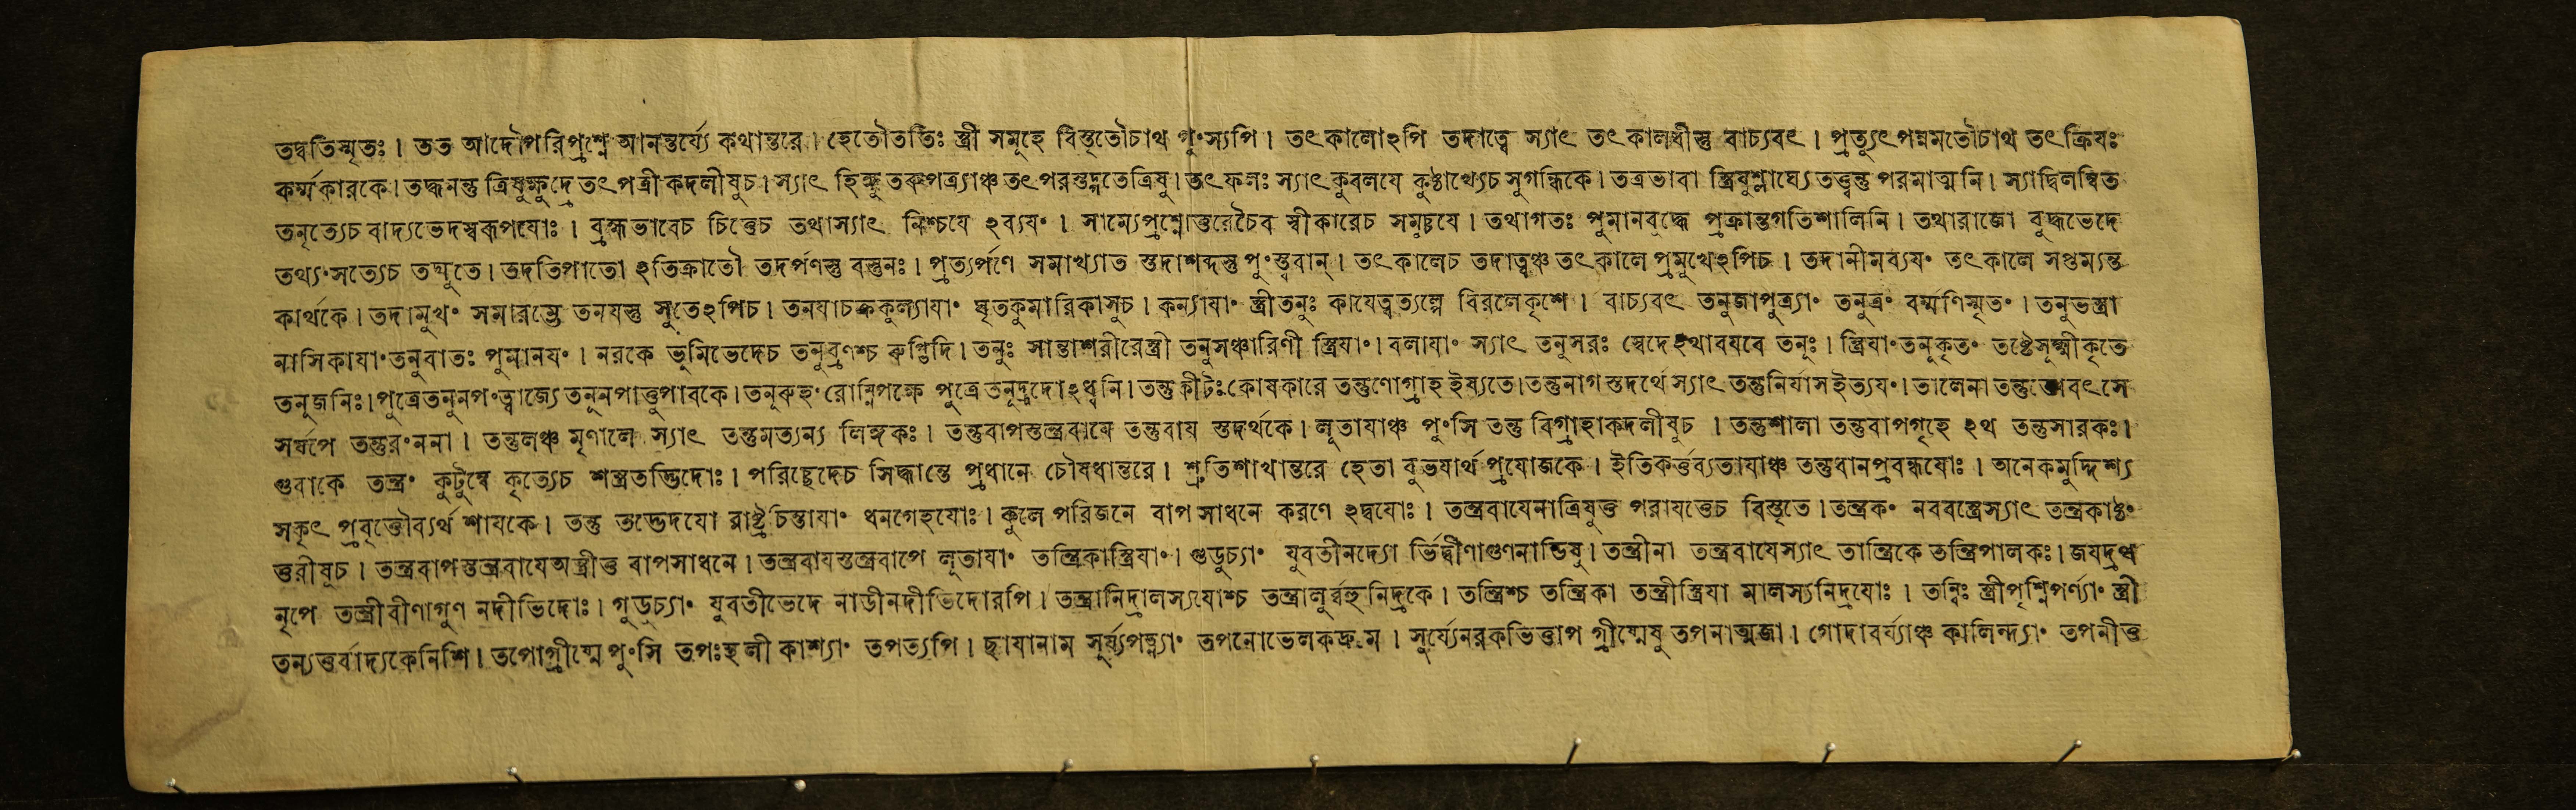 তদ্বতিস্মৃতঃ। তত আদৌপরিপ্রশ্নে আনন্তর্য্যে কথান্তরে। হেতৌততিঃ স্ত্রী সমূহে বিস্তৃতৌচাথ পুংস্যপি। তৎকালোঽপি তদাত্বে স্যাৎ তৎকালধীস্তু বাচ্যবৎ। প্রত্যুৎপন্নমতৌচাথ তৎক্রিযঃ
কর্ম্মকারকে। তদ্ধনস্তু ত্রিষুক্ষুদ্রে তৎপত্রী কদলীষুচ। স্যাৎ হিঙ্গুতরুপত্র্যাঞ্চ তৎপরস্তদ্গতেত্রিষু। তৎফলঃ স্যাৎ কুবলযে কুষ্ঠাখ্যেচ সুগন্ধিকে। তত্রভাবা স্ত্রিষুশ্লাঘ্যে তত্ত্বন্তু পরমাত্মনি। স্যাদ্বিলম্বিত
তনৃত্যেচ বাদ্যভেদস্বরূপযোঃ। ব্রহ্মভাবেচ চিত্তেচ তথাস্যাৎ নিশ্চযে ঽব্যযং। সাম্যেপ্রশ্নোত্তরেচৈব স্বীকারেচ সমুচ্চযে। তথাগতঃ পুমানবুদ্ধে প্রক্রান্তগতিশালিনি। তথারাজো বুদ্ধভেদে
তথ্যংসত্যেচ তদ্যুতে। তদতিপাতো ঽতিক্রাতৌ তদর্পণস্তু বস্তুনঃ। প্রত্যর্পণে সমাখ্যাত স্তদাশব্দস্তু পুংস্ত্ববান্। তৎকালেচ তদাত্বঞ্চ তৎকালে প্রমুখেঽপিচ। তদানীমব্যযং তৎকালে সপ্তম্যন্ত
কার্থকে। তদামুখং সমারম্ভে তনযস্তু সুতেঽপিচ। তনযাচক্রকুল্যাযাং ঘৃতকুমারিকাসুচ। কন্যাযাং স্ত্রীতনুঃ কাযেত্বত্যল্পে বিরলেকৃশে। বাচ্যবৎ তনুজাপুত্র্যাং তনুত্রং বর্ম্মণিস্মৃতং। তনুভস্ত্রা
নাসিকাযাংতনুবাতঃ পুমানযং। নরকে ভূমিভেদেচ তনুব্রণশ্চ রুগ্ভিদি। তনুঃ সান্তাশরীরেস্ত্রী তনুসঞ্চারিণী স্ত্রিযাং। বলাযাং স্যাৎ তনুসরঃ স্বেদেঽথাবযবে তনূঃ। স্ত্রিযাংতনূকৃতং তষ্টেসূক্ষ্মীকৃতে
তনূজনিঃ।পুত্রেতনুনপংত্বাজ্যে তনূনপাত্তুপাবকে। তনূরুহংরোম্নিপক্ষে পুত্রে তনূদ্রদোঽধ্বনি। তন্তুকীটঃকোষকারে তন্তুণোগ্রাহ ইষ্যতে।তন্তুনাগ স্তদর্থে স্যাৎ তন্তুনির্যাসইত্যযং। তালেনা
সর্ষপে তন্তুরংননা। তন্তুলঞ্চ মৃণালে স্যাৎ তন্তুমত্যন্য লিঙ্গকঃ। তন্তুবাপস্তন্ত্রবাযে তন্তুবায় স্তদর্থকে। লূতাযাঞ্চ পুংসি তন্তু বিগ্রাহাকদলীষুচ । তন্তুশালা তন্তুবাপগৃহে ঽথ তন্তুসারকঃ।
গুবাকে তন্ত্রং কুটুম্বে কৃত্যেচ শস্ত্রতদ্ভিদোঃ। পরিচ্ছেদেচ সিদ্ধান্তে প্রধানে চৌষধান্তরে। শ্রুতিশাখান্তরে হেতা বুভযার্থ প্রযোজকে। ইতিকর্ত্তব্যতাযাঞ্চ তন্তুবানপ্রবন্ধযোঃ। অনেকমুদ্দিশ্য
সকৃৎ প্রবৃত্তৌব্যর্থ শাযকে। তন্তু তদ্ভেদযো রাষ্ট্রচিন্তাযাং ধনগেহযোঃ। কুলে পরিজনে বাপ সাধনে করণে ঽদ্বযোঃ। তন্ত্রবাযেনাত্রিষুত্ত পরাযত্তেচ বিস্তৃতে। তন্ত্রকং নববস্ত্রেস্যাৎ তন্ত্রকাষ্ঠং
ত্তরীষুচ। তন্ত্রবাপস্তন্ত্রবাযেঅস্ত্রীত্ত বাপসাধনে। তন্ত্রবাযস্তন্ত্রবাপে লূতাযাং তন্ত্রিকাস্ত্রিযাং। গুডুচ্যাং যুবতীনদ্যো র্ভিদ্বীণাগুণনাডিষু। তন্ত্রীনা তন্ত্রবাযেস্যাৎ তান্ত্রিকে তন্ত্রিপালকঃ। জযদ্রথ
নৃপে তন্ত্রীবীণাগুণ নদীভিদোঃ। গুডুচ্যাং যুবতীভেদে নাডীনদীভিদোরপি। তন্ত্রানিদ্রালস্যযোশ্চ তন্ত্রালুর্ব্বহুনিদ্রকে। তন্ত্রিশ্চ তন্ত্রিকা তন্ত্রীস্ত্রিযা মালস্যনিদ্রযোঃ। তন্বিঃ স্ত্রীপৃশ্নিপর্ণ্যাং স্ত্রী
তন্যত্তর্বাদ্যকেনিশি। তপোগ্রীষ্মে পুংসি তপঃহলী কাশ্যাং তপত্যপি। ছাযানাম সূর্য্যপত্ন্যাং তপনোভেলকদ্রুমে। সূর্য্যেনরকভিত্তাপ গ্রীষ্মেষু তপনাত্মজা। গোদাবর্য্যাঞ্চ কালিন্দ্যাং তপনীত্ত